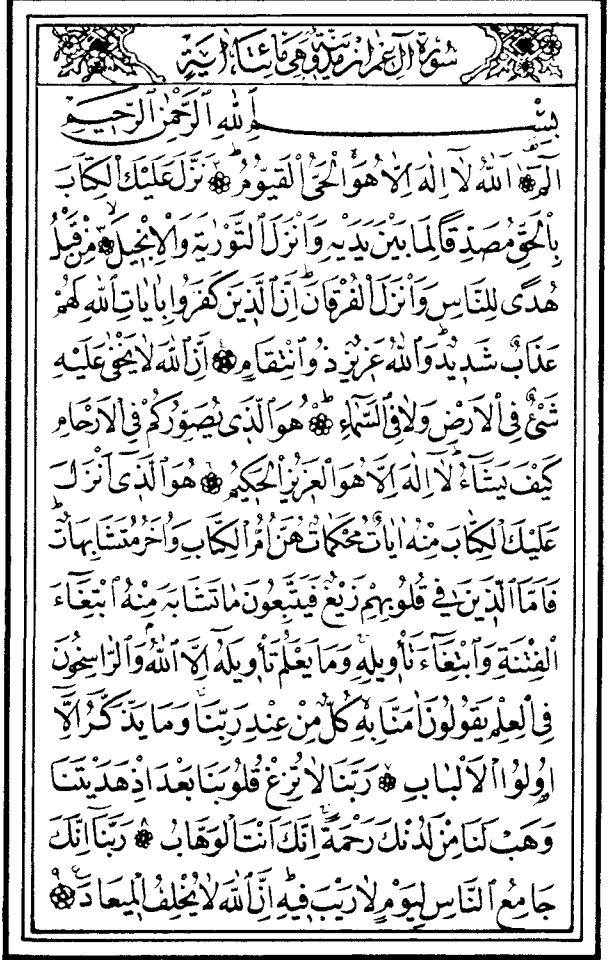 سُورَةُ اٰلِ عِمْرٰنَ مَدَنِيَّةٌ وَهِيَ مِائَتَا اٰيَةٍ
بِسْمِ اللّٰهِ الرَّحْمٰنِ الرَّحِيمِ
الٓمٓ ۞ اَللّٰهُ لَٓا اِلٰهَ اِلَّا هُوَ الْحَيُّ الْقَيُّومُ ۞ نَزَّلَ عَلَيْكَ الْكِتَابَ
بِالْحَقِّ مُصَدِّقًا لِمَا بَيْنَ يَدَيْهِ وَاَنْزَلَ التَّوْرٰيةَ وَالْاِنْجِيلَ ۞ مِنْ قَبْلُ
هُدًى لِلنَّاسِ وَاَنْزَلَ الْفُرْقَانَ اِنَّ الَّذِينَ كَفَرُوا بِاٰيَاتِ اللّٰهِ لَهُمْ
عَذَابٌ شَدِيدٌ وَاللّٰهُ عَزِيزٌ ذُو انْتِقَامٍ ۞ اِنَّ اللّٰهَ لَا يَخْفٰى عَلَيْهِ
شَيْءٌ فِي الْاَرْضِ وَلَا فِي السَّمَٓاءِ ۞ هُوَ الَّذِي يُصَوِّرُكُمْ فِي الْاَرْحَامِ
كَيْفَ يَشَٓاءُ لَٓا اِلٰهَ اِلَّا هُوَ الْعَزِيزُ الْحَكِيمُ ۞ هُوَ الَّذِٓي اَنْزَلَ
عَلَيْكَ الْكِتَابَ مِنْهُ اٰيَاتٌ مُحْكَمَاتٌ هُنَّ اُمُّ الْكِتَابِ وَاُخَرُ مُتَشَابِهَاتٌ
فَاَمَّا الَّذِينَ فِي قُلُوبِهِمْ زَيْغٌ فَيَتَّبِعُونَ مَا تَشَابَهَ مِنْهُ ابْتِغَٓاءَ
الْفِتْنَةِ وَابْتِغَٓاءَ تَأْوِيلِهِ وَمَا يَعْلَمُ تَأْوِيلَهُٓ اِلَّا اللّٰهُ وَالرَّاسِخُونَ
فِي الْعِلْمِ يَقُولُونَ اٰمَنَّا بِهِ كُلٌّ مِنْ عِنْدِ رَبِّنَا وَمَا يَذَّكَّرُ اِلَّٓا
اُولُوا الْاَلْبَابِ ۞ رَبَّنَا لَا تُزِغْ قُلُوبَنَا بَعْدَ اِذْ هَدَيْتَنَا
وَهَبْ لَنَا مِنْ لَدُنْكَ رَحْمَةً اِنَّكَ اَنْتَ الْوَهَّابُ ۞ رَبَّنَٓا اِنَّكَ
جَامِعُ النَّاسِ لِيَوْمٍ لَا رَيْبَ فِيهِ اِنَّ اللّٰهَ لَا يُخْلِفُ الْمِيعَادَ ۞